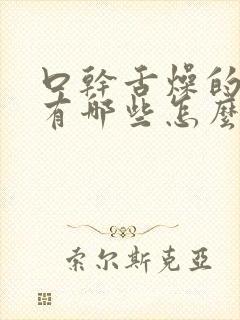 口幹舌燥的
有哪些怎麼
索尔斯克亞